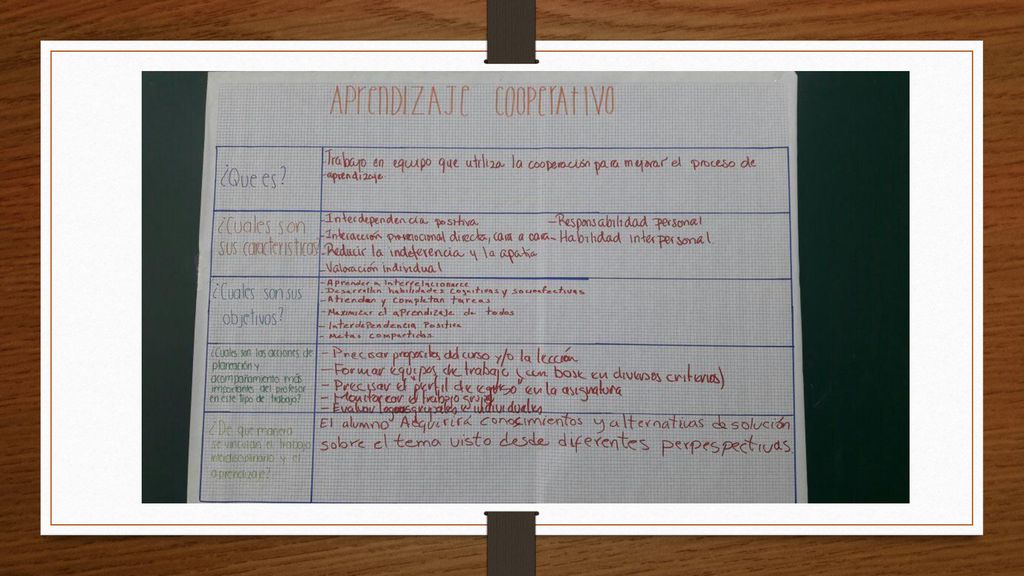 APRENDIZAJE COOPERATIVO
¿Que es?
Trabajo en equipo que utiliza la cooperación para mejorar el proceso de
aprendizaje
¿Cuales son
sus caracteristicas?
-Interdependencia positiva
-Interacción promocional directa, cara a cara
-Reducir la indeferencia y la apatia
-Valoración individual
-Responsabilidad personal
-Habilidad interpersonal.
¿Cuales son sus
objetivos?
-Aprender a interrelacionarce
-Desarrollan habilidades cognitivas y socioafectivas
-Atiendan y completan tareas
-Maximizar el aprendizaje de todos
-Interdependencia Positiva
-metas compartidas
¿Cuales son las acciones de
planeación y
acompañamiento más
importantes del profesor
en este tipo de trabajo?
-Precisar propositos del curso y/o la lección
-Formar equipos de trabajo (con base en diversos criterios)
-Precisar el "perfil de egreso" en la asignatura
-Monitorear el trabajo grupal
-Evaluar logros grupales e individuales
¿De que manera
se vinculan el trabajo
interdisciplinario y el
aprendizaje?
El alumno Adquirira conocimientos y alternativas de solución
sobre el tema visto desde diferentes perpespectivas.